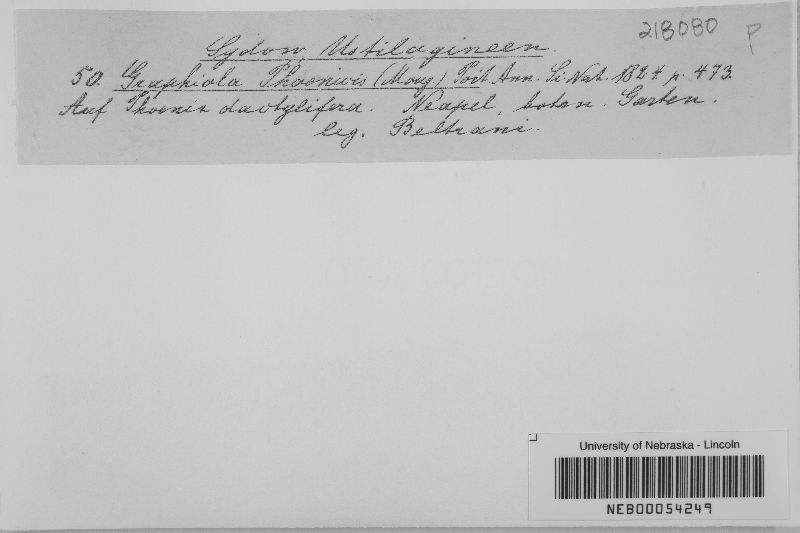 218080 P
Sydow Ustilagineen.
50. Graphiola Phoenicis (Moug.) Poit. Ann. Si. Nat. 1824 p. 473.
Auf Phoenix dactylifera. Neapel, botan. Garten.
leg. Beltrani.
University of Nebraska - Lincoln
NEB00054249